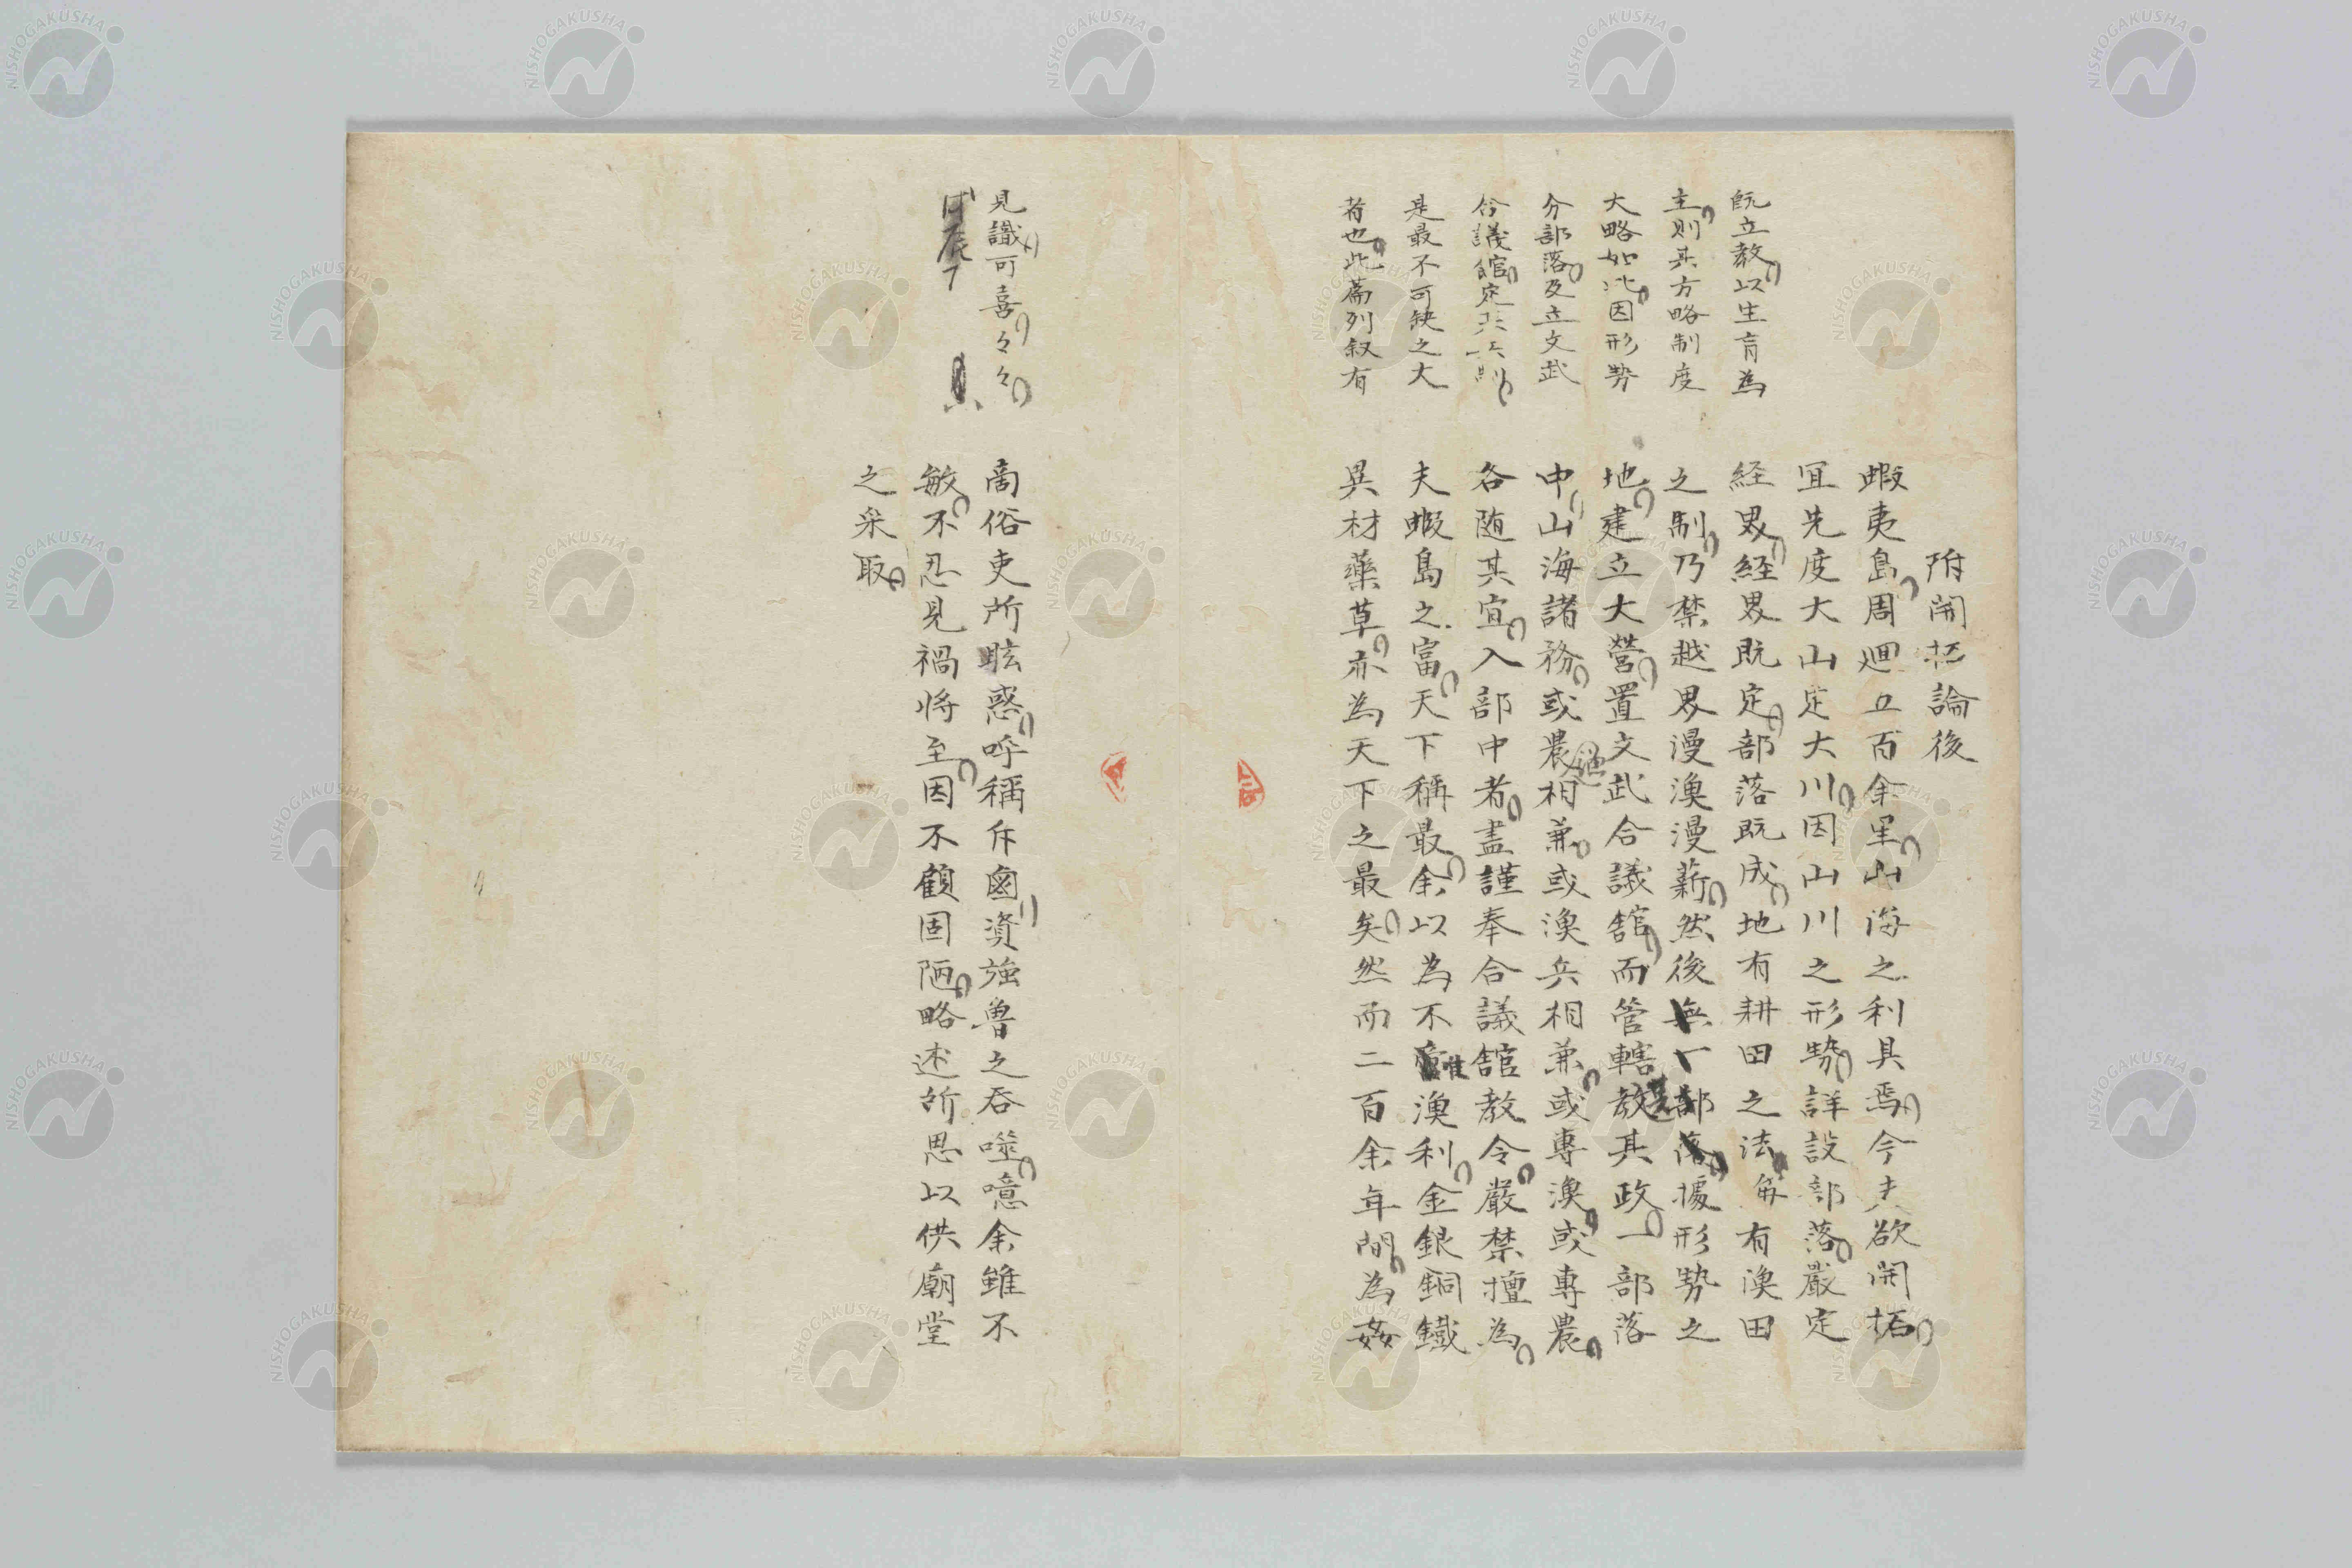 附開拓論後
蝦夷島周廻五百余里山海之利具焉今夫欲開拓
宜先度大山定大川因山川之形勢詳設部落嚴定
経界経界既定部落既成地有耕田之法海有漁田
之制乃禁越界漫漁漫薪然後據形勢之
地建立大營置文武合議舘而管轄其政一部落
中山海諸務或農漁相兼或漁兵相兼或専漁或専農
各随其宜入部中者盡謹奉合議舘教令嚴禁擅為
夫蝦島之富天下稱最余以為不惟漁利金銀銅鐵
異材藥草亦為天下之最矣然而二百余年間為姦
既立教以生育為
主則其方略制度
大略如此因形勢
分部落及立文武
合議舘定其
是最不可缺之大
者也此篇列叙有
商俗吏所眩惑呼稱斥鹵資強魯之呑噬噫余雖不
敏不忍見禍将至因不顧固陋略述所思以供廟堂
之采取
見識可喜々々
NISHOGAKUSHA